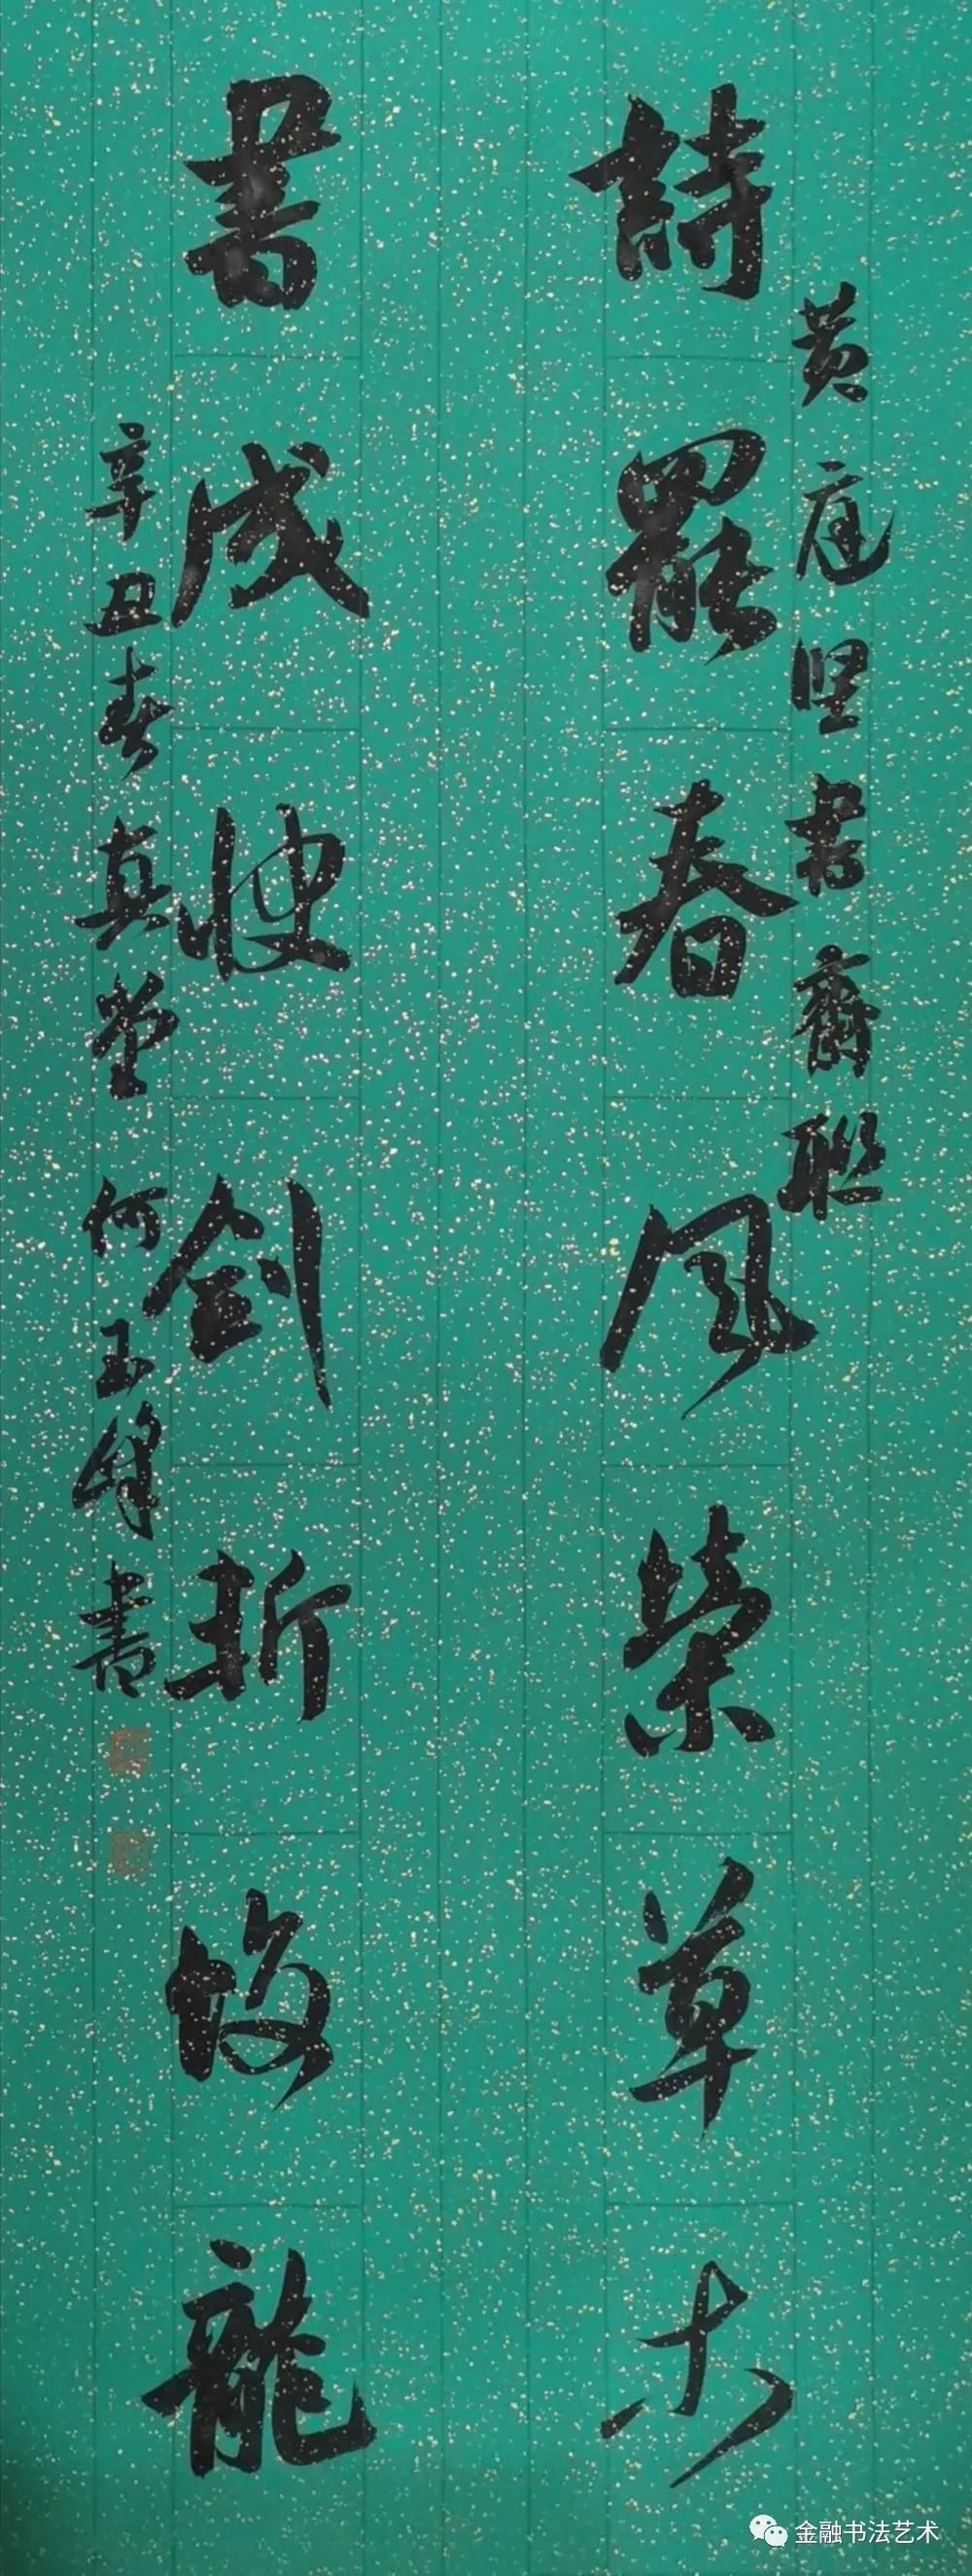 黄庭坚書齋聯
詩罷春風榮草木
書成快劍斬蛟龍
辛丑春真堂何玉書
金融书法艺术